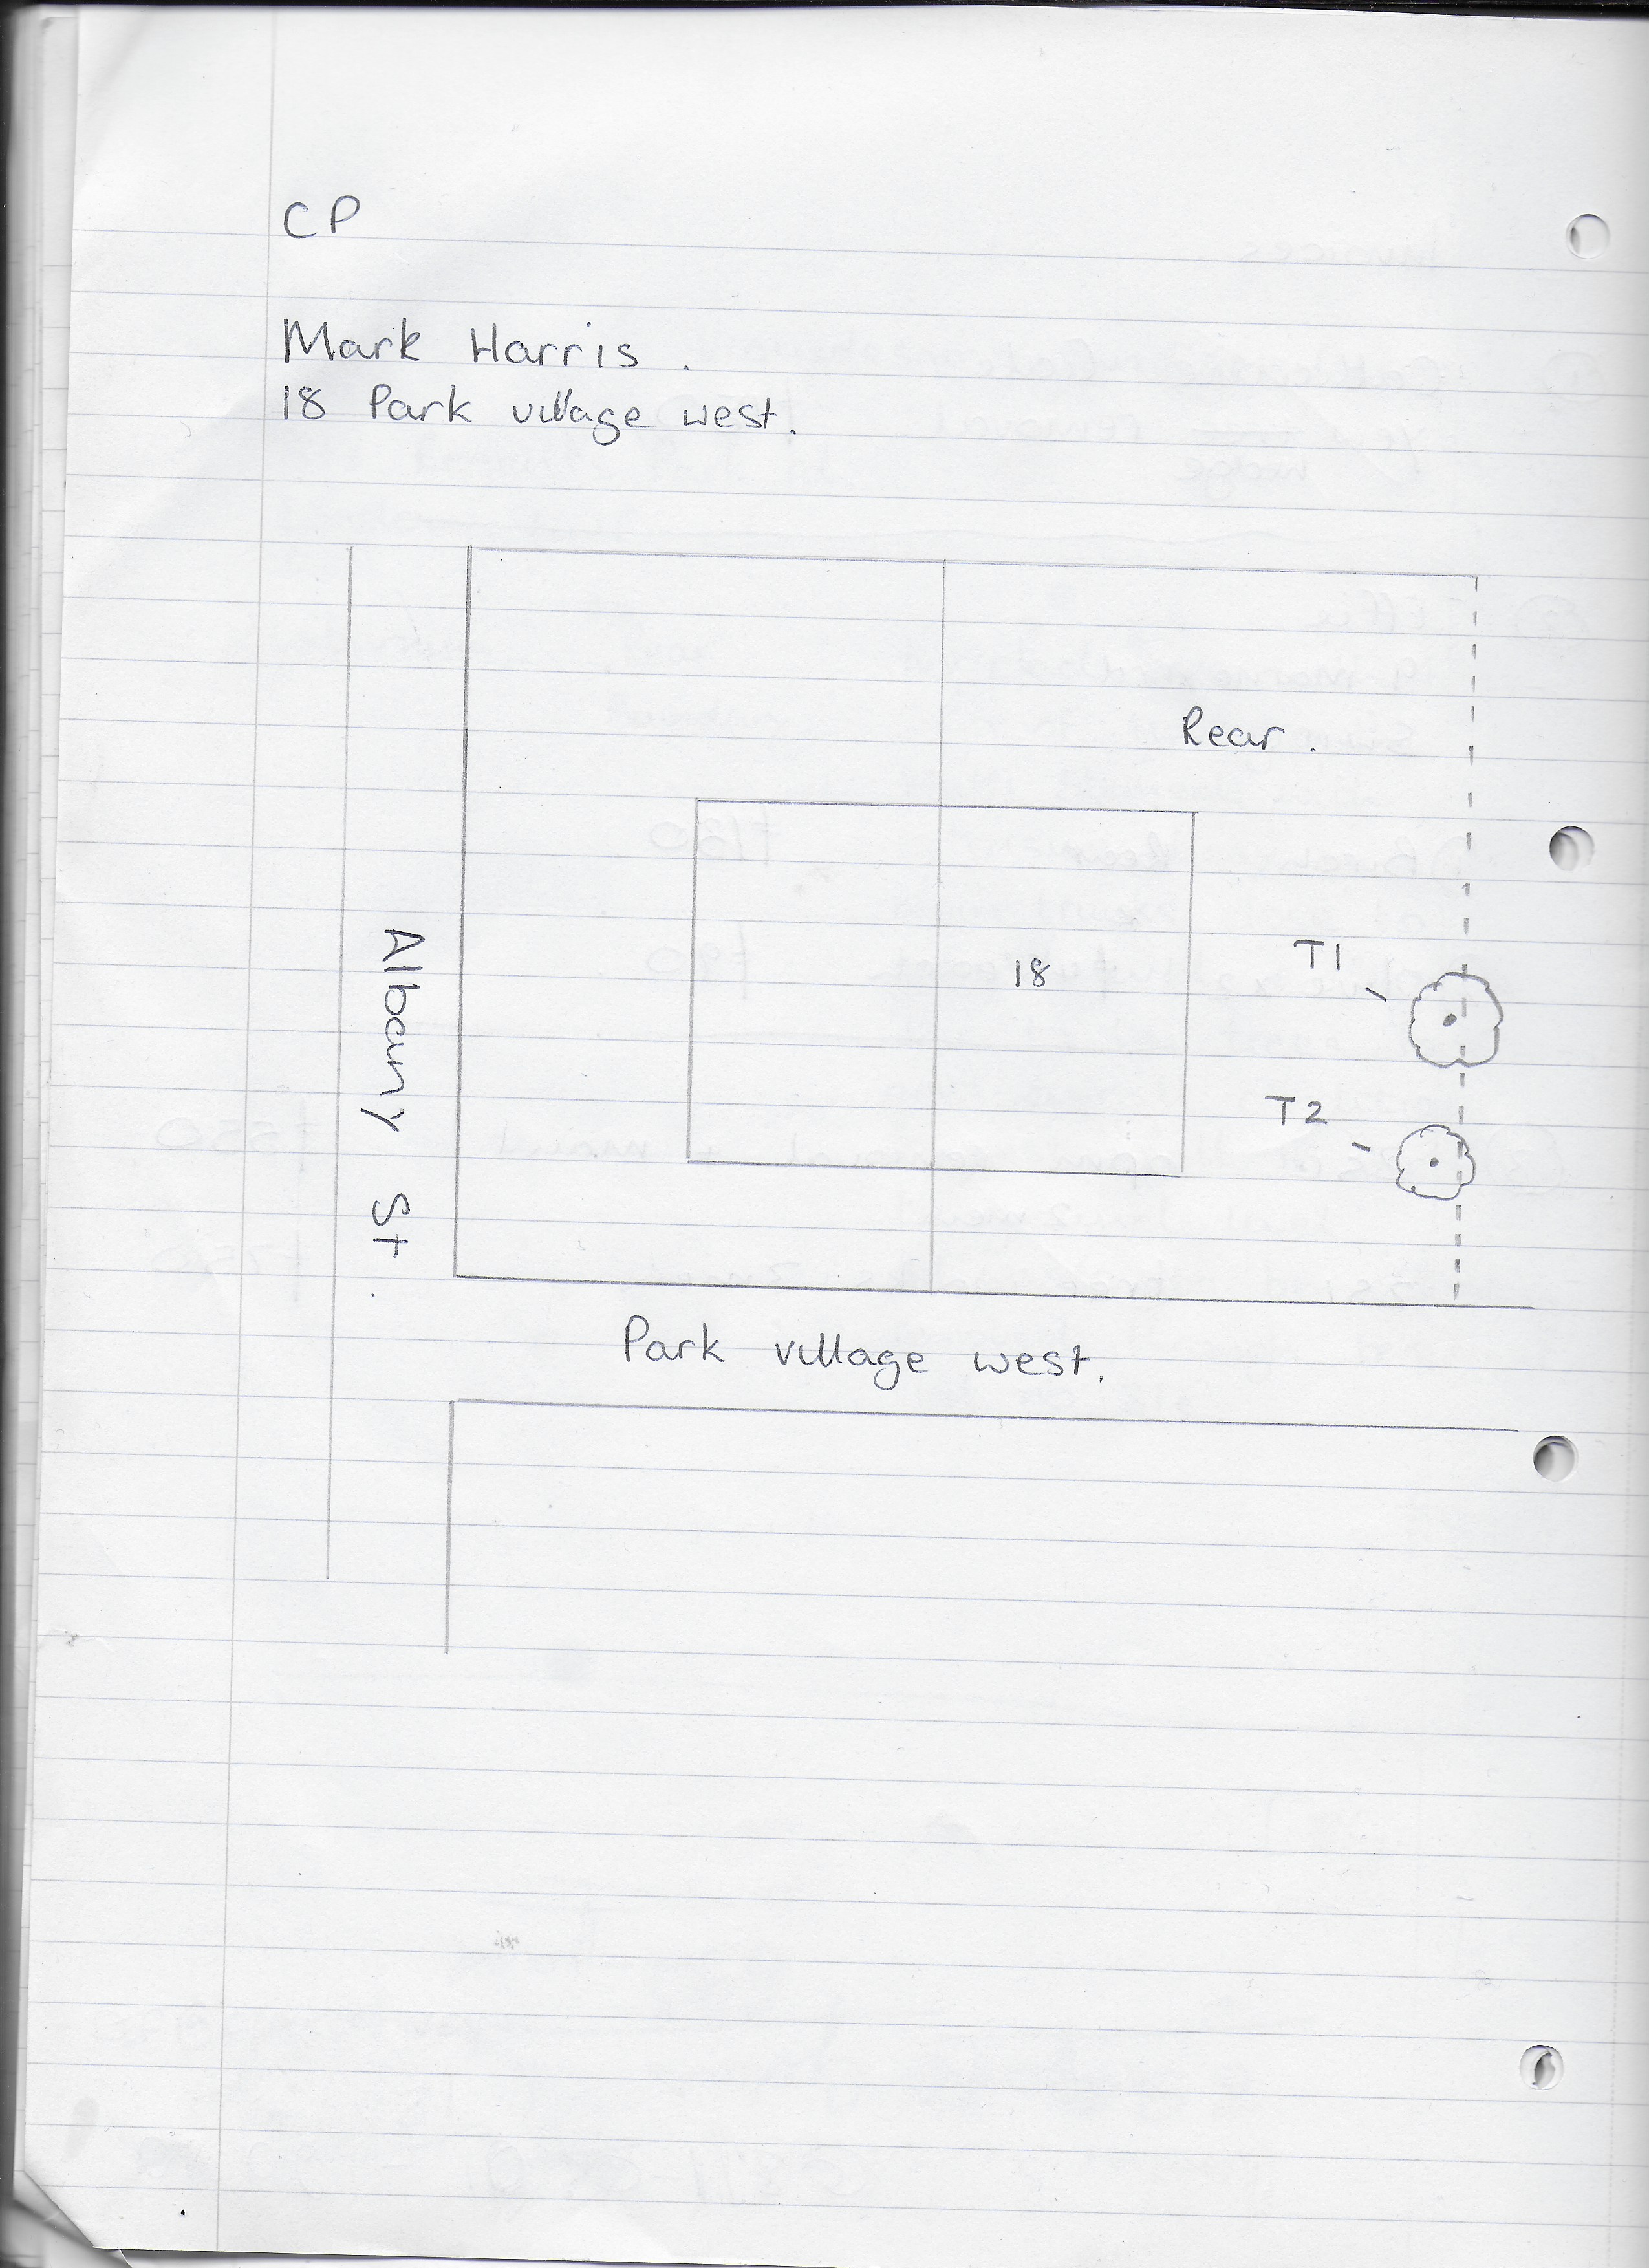 CP
Mark Harris.
18 Park village west.
Rear.
T1
18
T2
Albany St.
Park village west.